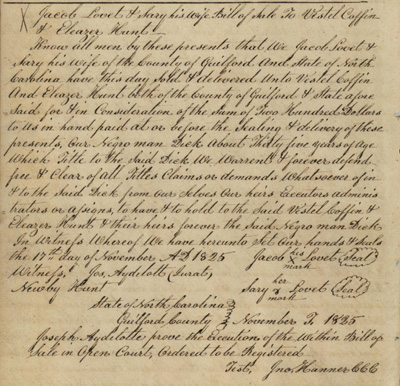 X Jacob Lovet & Sary his Wife Bill of Sale To Vestel Coffin
& Eleazer Hunt
Know all men by these presents that We Jacob Lovet &
Sary his Wife of the County of Guilford And State of North
Carolina have this day Sold & delivered Unto Vestel Coffin
And Eleazer Hunt both of the County of Guilford & State afore
Said for & in Consideration of the Sum of Two Hundred Dollars
to Us in hand paid at or before the Sealing & delivery of these
presents, Our Negro man Dick About Thirty five years of Age
Which Title to the Said Dick We Warrent & forever defend
free & Clear of all Titles Claims or demands Whatsoever of in
& to the Said Dick from Our Selves Our heirs Executors adminis
trators or asigns, to have & to hold to the Said Vestel Coffin &
Eleazer Hunt & their heirs forever the Said Negro man Dick
In Witness Whereof We have hereunto Set Our hands & Seals
the 17th day of November AD 1825 Jacob his X mark Lovet (Seal)
Witness, Jos, Aydelott (Jurat)
Newby Hunt Sary her X mark Lovet (Seal)
State of North Carolina
Guilford County November T. 1825
Joseph Aydelotte prove the Execution of the Within Bill of
Sale in Open Court, Ordered to be Registered
Test, Jno, Hanner CCC